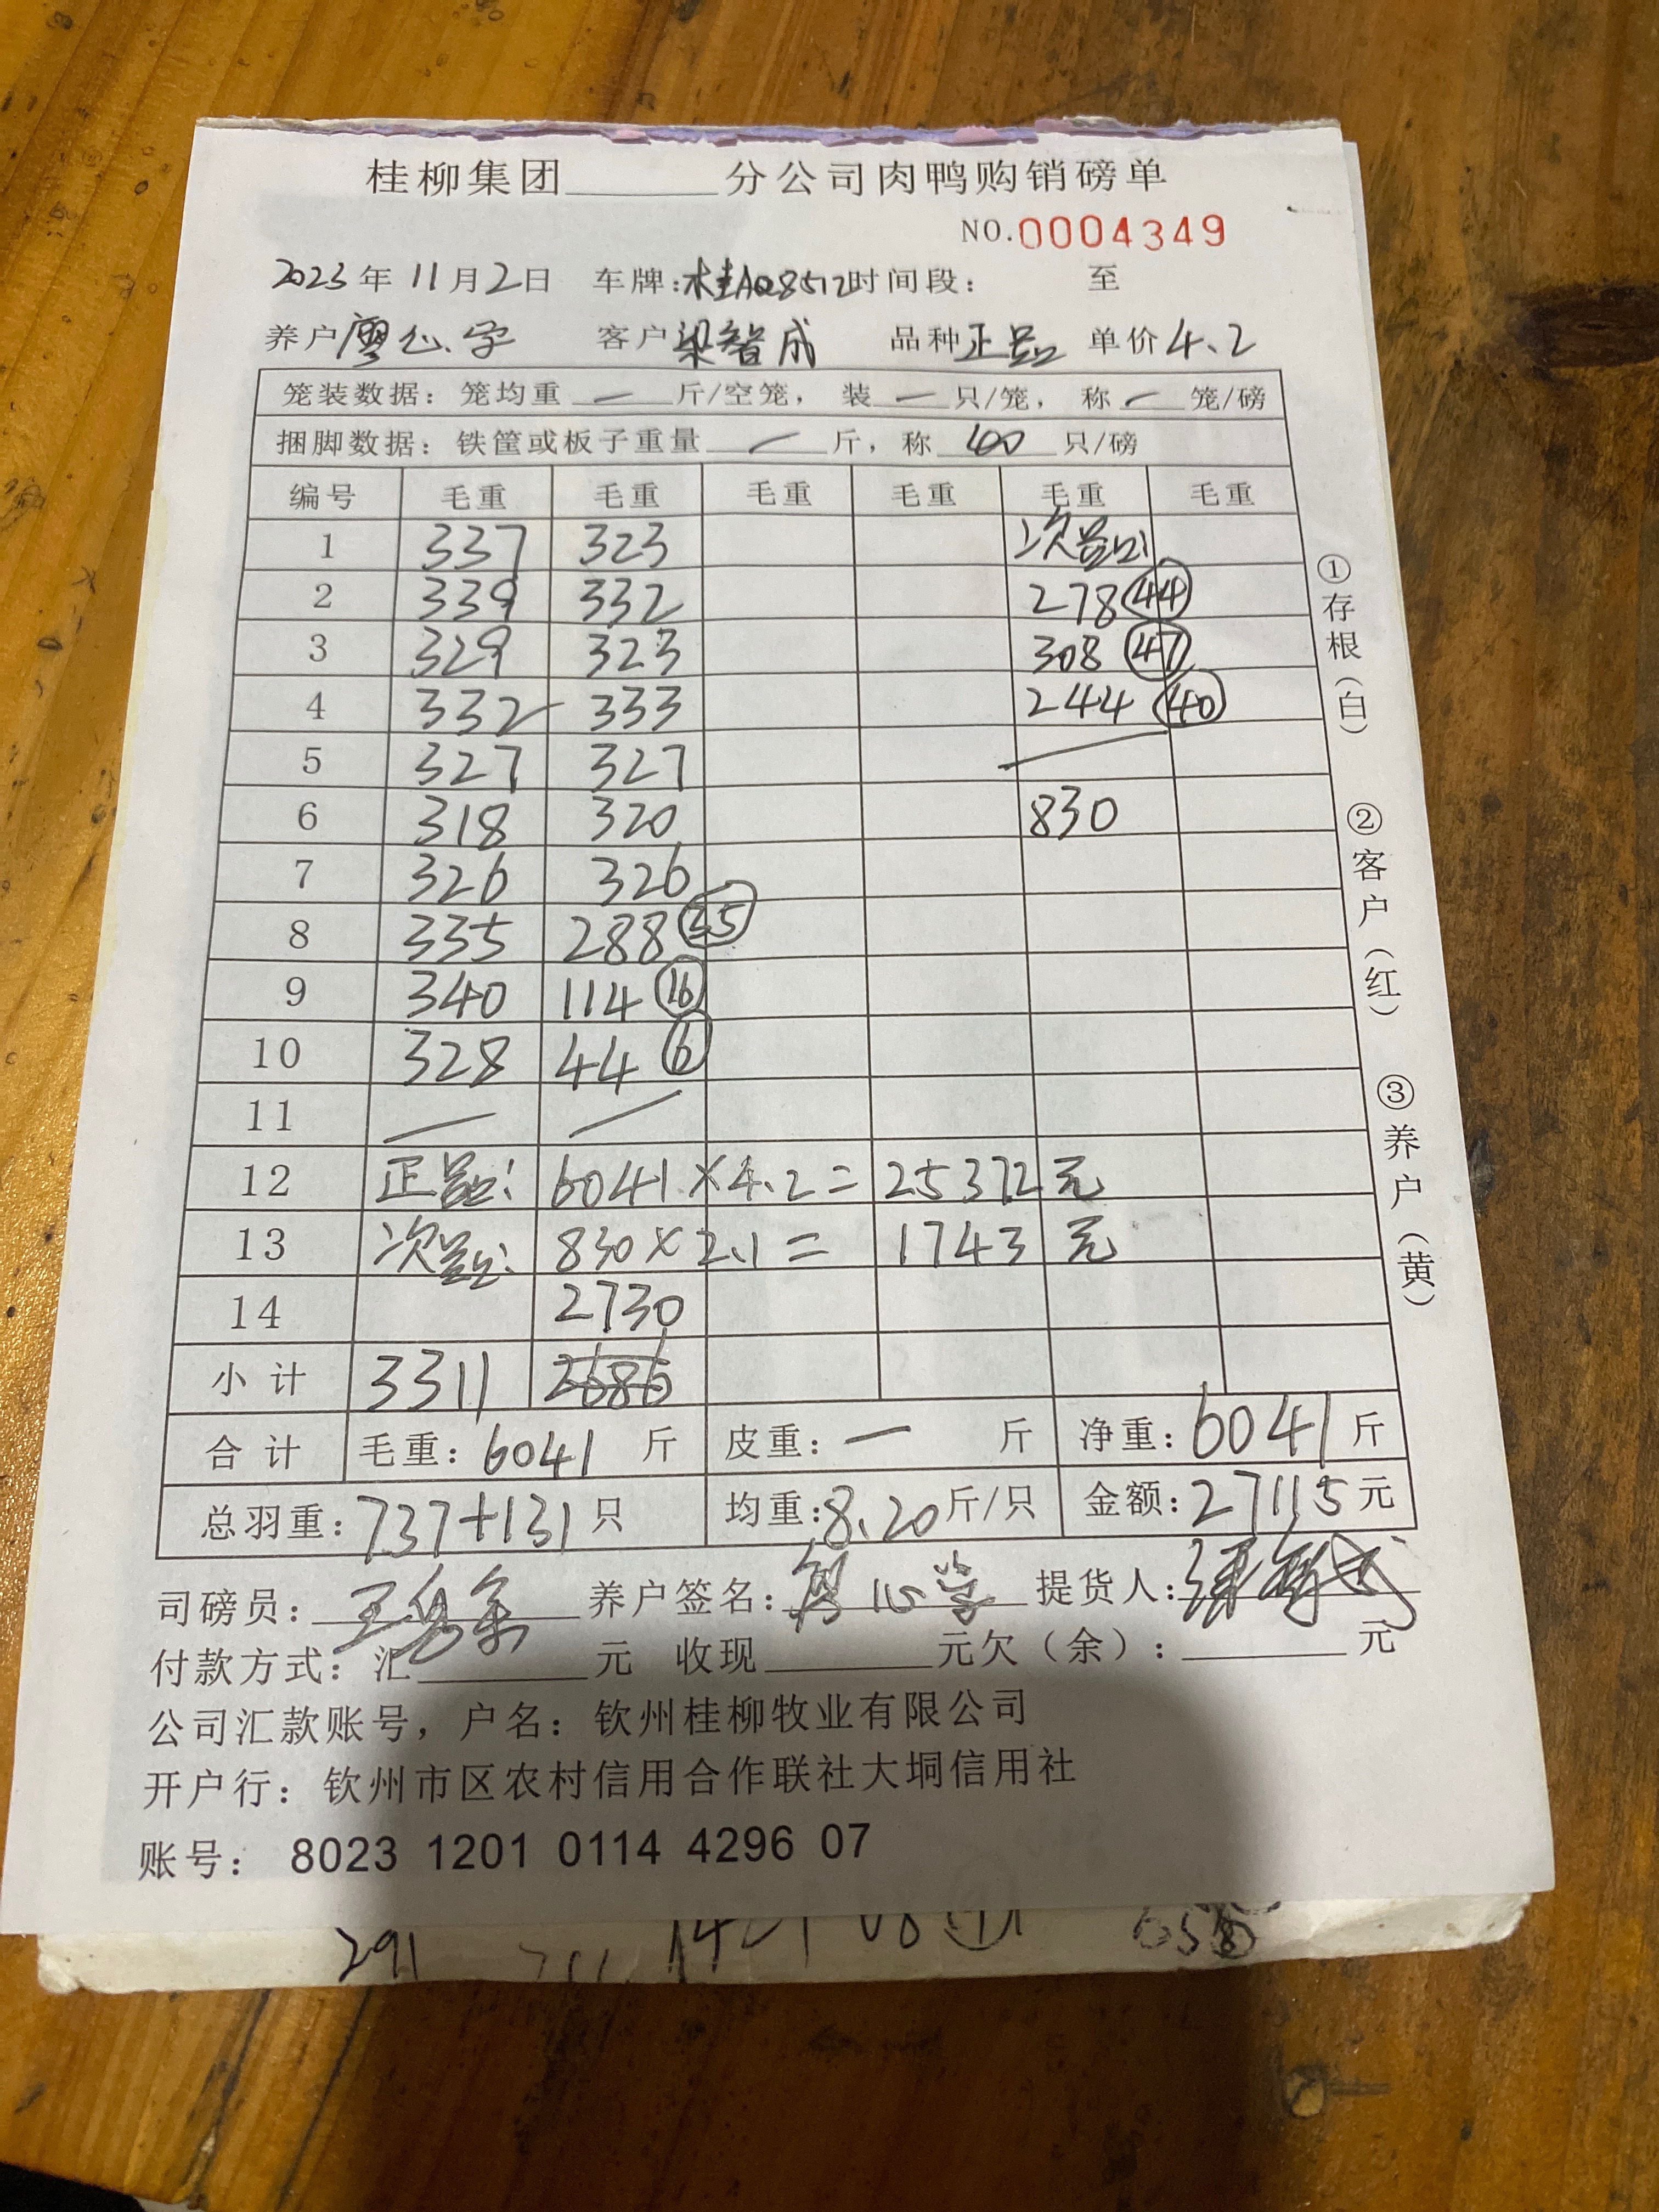 桂柳集团______分公司肉鸭购销磅单
NO.0004349
2023年11月2日 车牌:桂AQ8512时间段: 至
养户廖心学 客户梁智成 品种正品 单价4.2
笼装数据: 笼均重 — 斤/空笼, 装 — 只/笼, 称 — 笼/磅
捆脚数据: 铁筐或板子重量 — 斤, 称 40 只/磅
编号 毛重 毛重 毛重 毛重 毛重 毛重
1 337 323 次品
2 339 332 278 44
3 329 323 308 47
4 332 333 244 40
5 327 327 —
6 318 320 830
7 326 326
8 335 288 35
9 340 114 16
10 328 44 6
11 — —
12 正品: 6041×4.2= 25372 元
13 次品: 830×2.1= 1743 元
14 2730
小计 3311 2686
合计 毛重: 6041 斤 皮重: — 斤 净重: 6041 斤
总羽重: 737+131 只 均重: 8.20 斤/只 金额: 27115 元
司磅员: 养户签名: 廖心学 提货人:
付款方式: 汇______元 收现______元欠(余):______元
公司汇款账号, 户名: 钦州桂柳牧业有限公司
开户行: 钦州市区农村信用合作联社大垌信用社
账号: 8023 1201 0114 4296 07
①存根(白) ②客户(红) ③养户(黄)
291